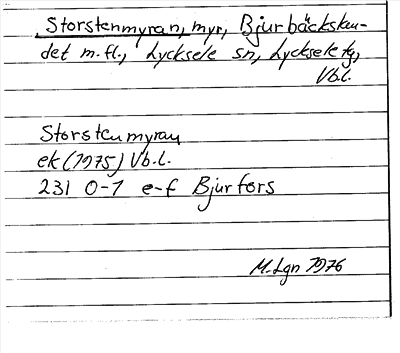 Storstenmyran, myr, Bjurbäckslan-
det m.fl., Lycksele sn, Lycksele tg,
Vb.l.
Storstenmyran
ek (1975) Vb.l.
231 0-1 e-f Bjurfors
M.Lgn 1976